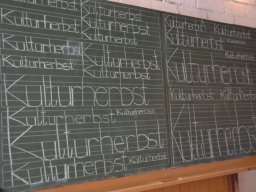 Kulturherbst Kulturherbst
Kulturherbst Kulturherbst
Kulturherbst Kulturherbst
Kulturherbst Kulturherbst
Kulturherbst
Kulturherbst Kulturherbst
Kulturherbst
Kulturherbst Kulturherbst
Kulturherbst
Kulturherbst
Kulturherbst
Kulturherbst
Kulturherbst Kulturherbst
Kulturherbst
Kulturherbst